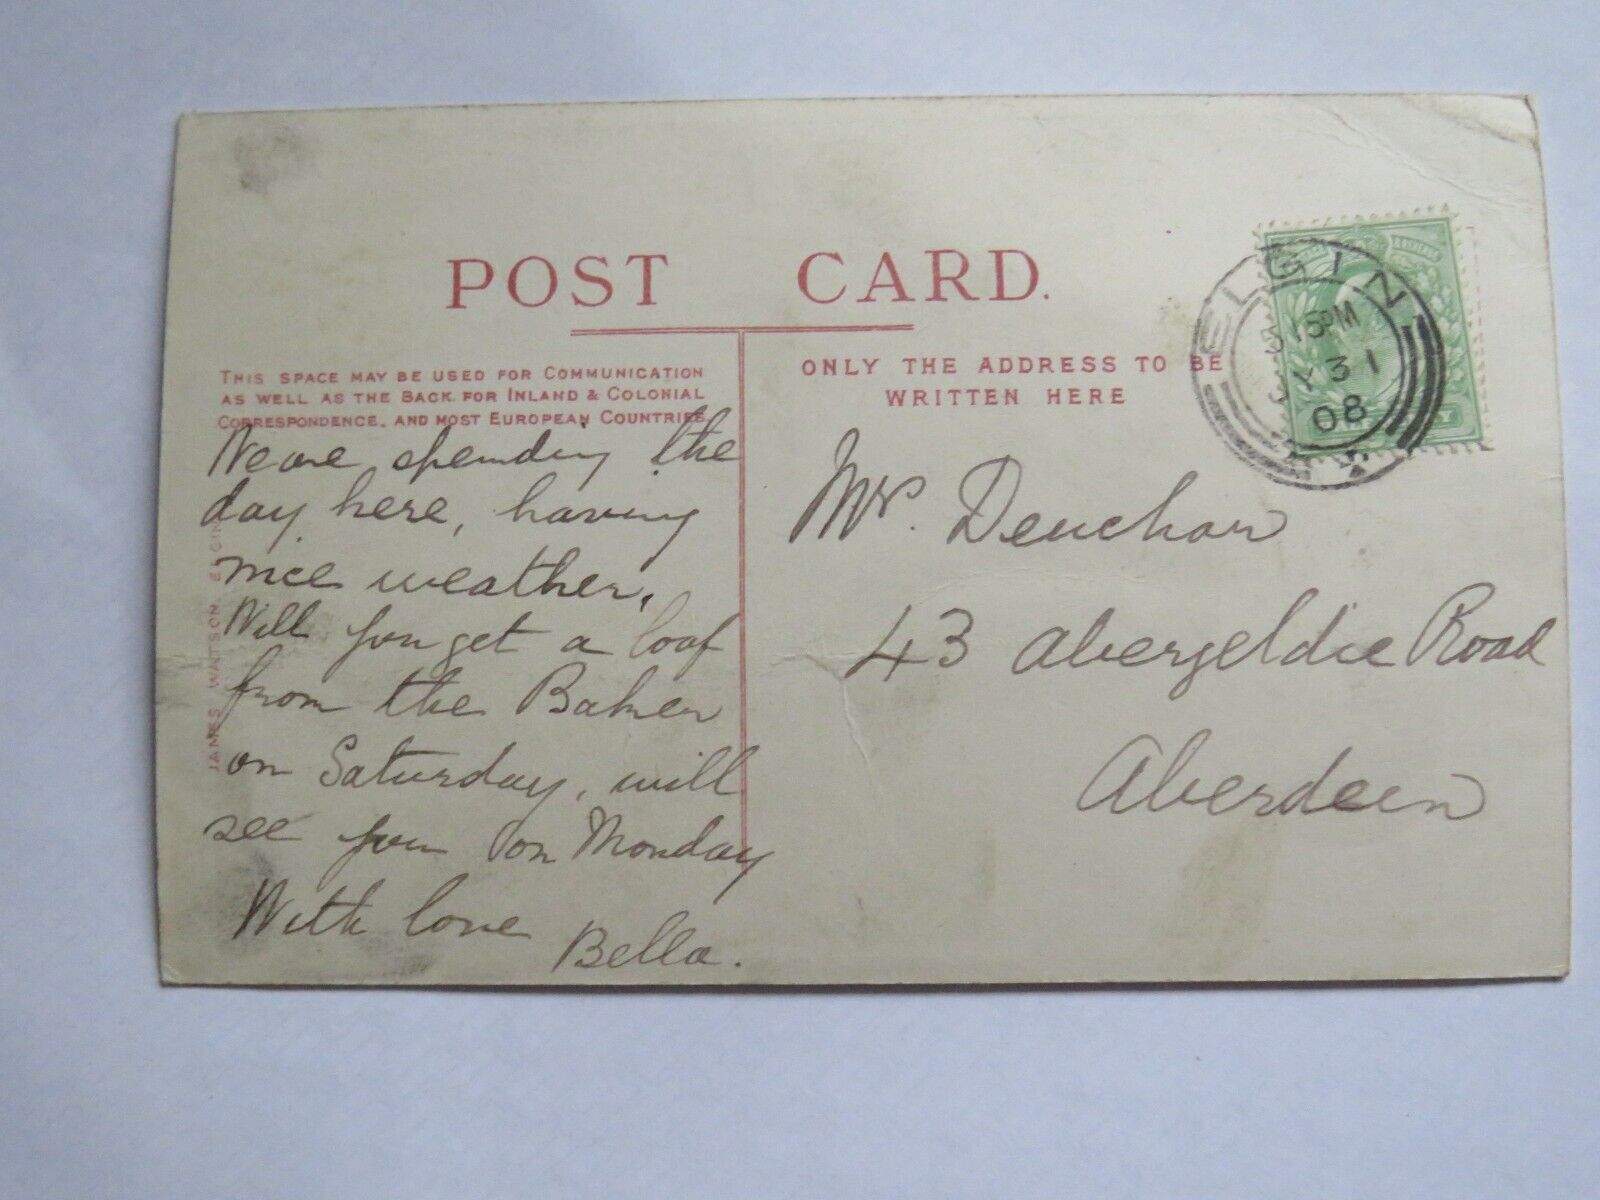 POST CARD.
THIS SPACE MAY BE USED FOR COMMUNICATION
AS WELL AS THE BACK FOR INLAND & COLONIAL
CORRESPONDENCE, AND MOST EUROPEAN COUNTRIES
We are spending the
day here, having
nice weather.
Will you get a loaf
from the Baker
on Saturday, will
see you on Monday
With love
Bella.
JAMES WATSON, ELGIN
ONLY THE ADDRESS TO BE
WRITTEN HERE
Mr. Deuchar
43 Abergeldie Road
Aberdeen
ELGIN
3 15PM
JY 31
08